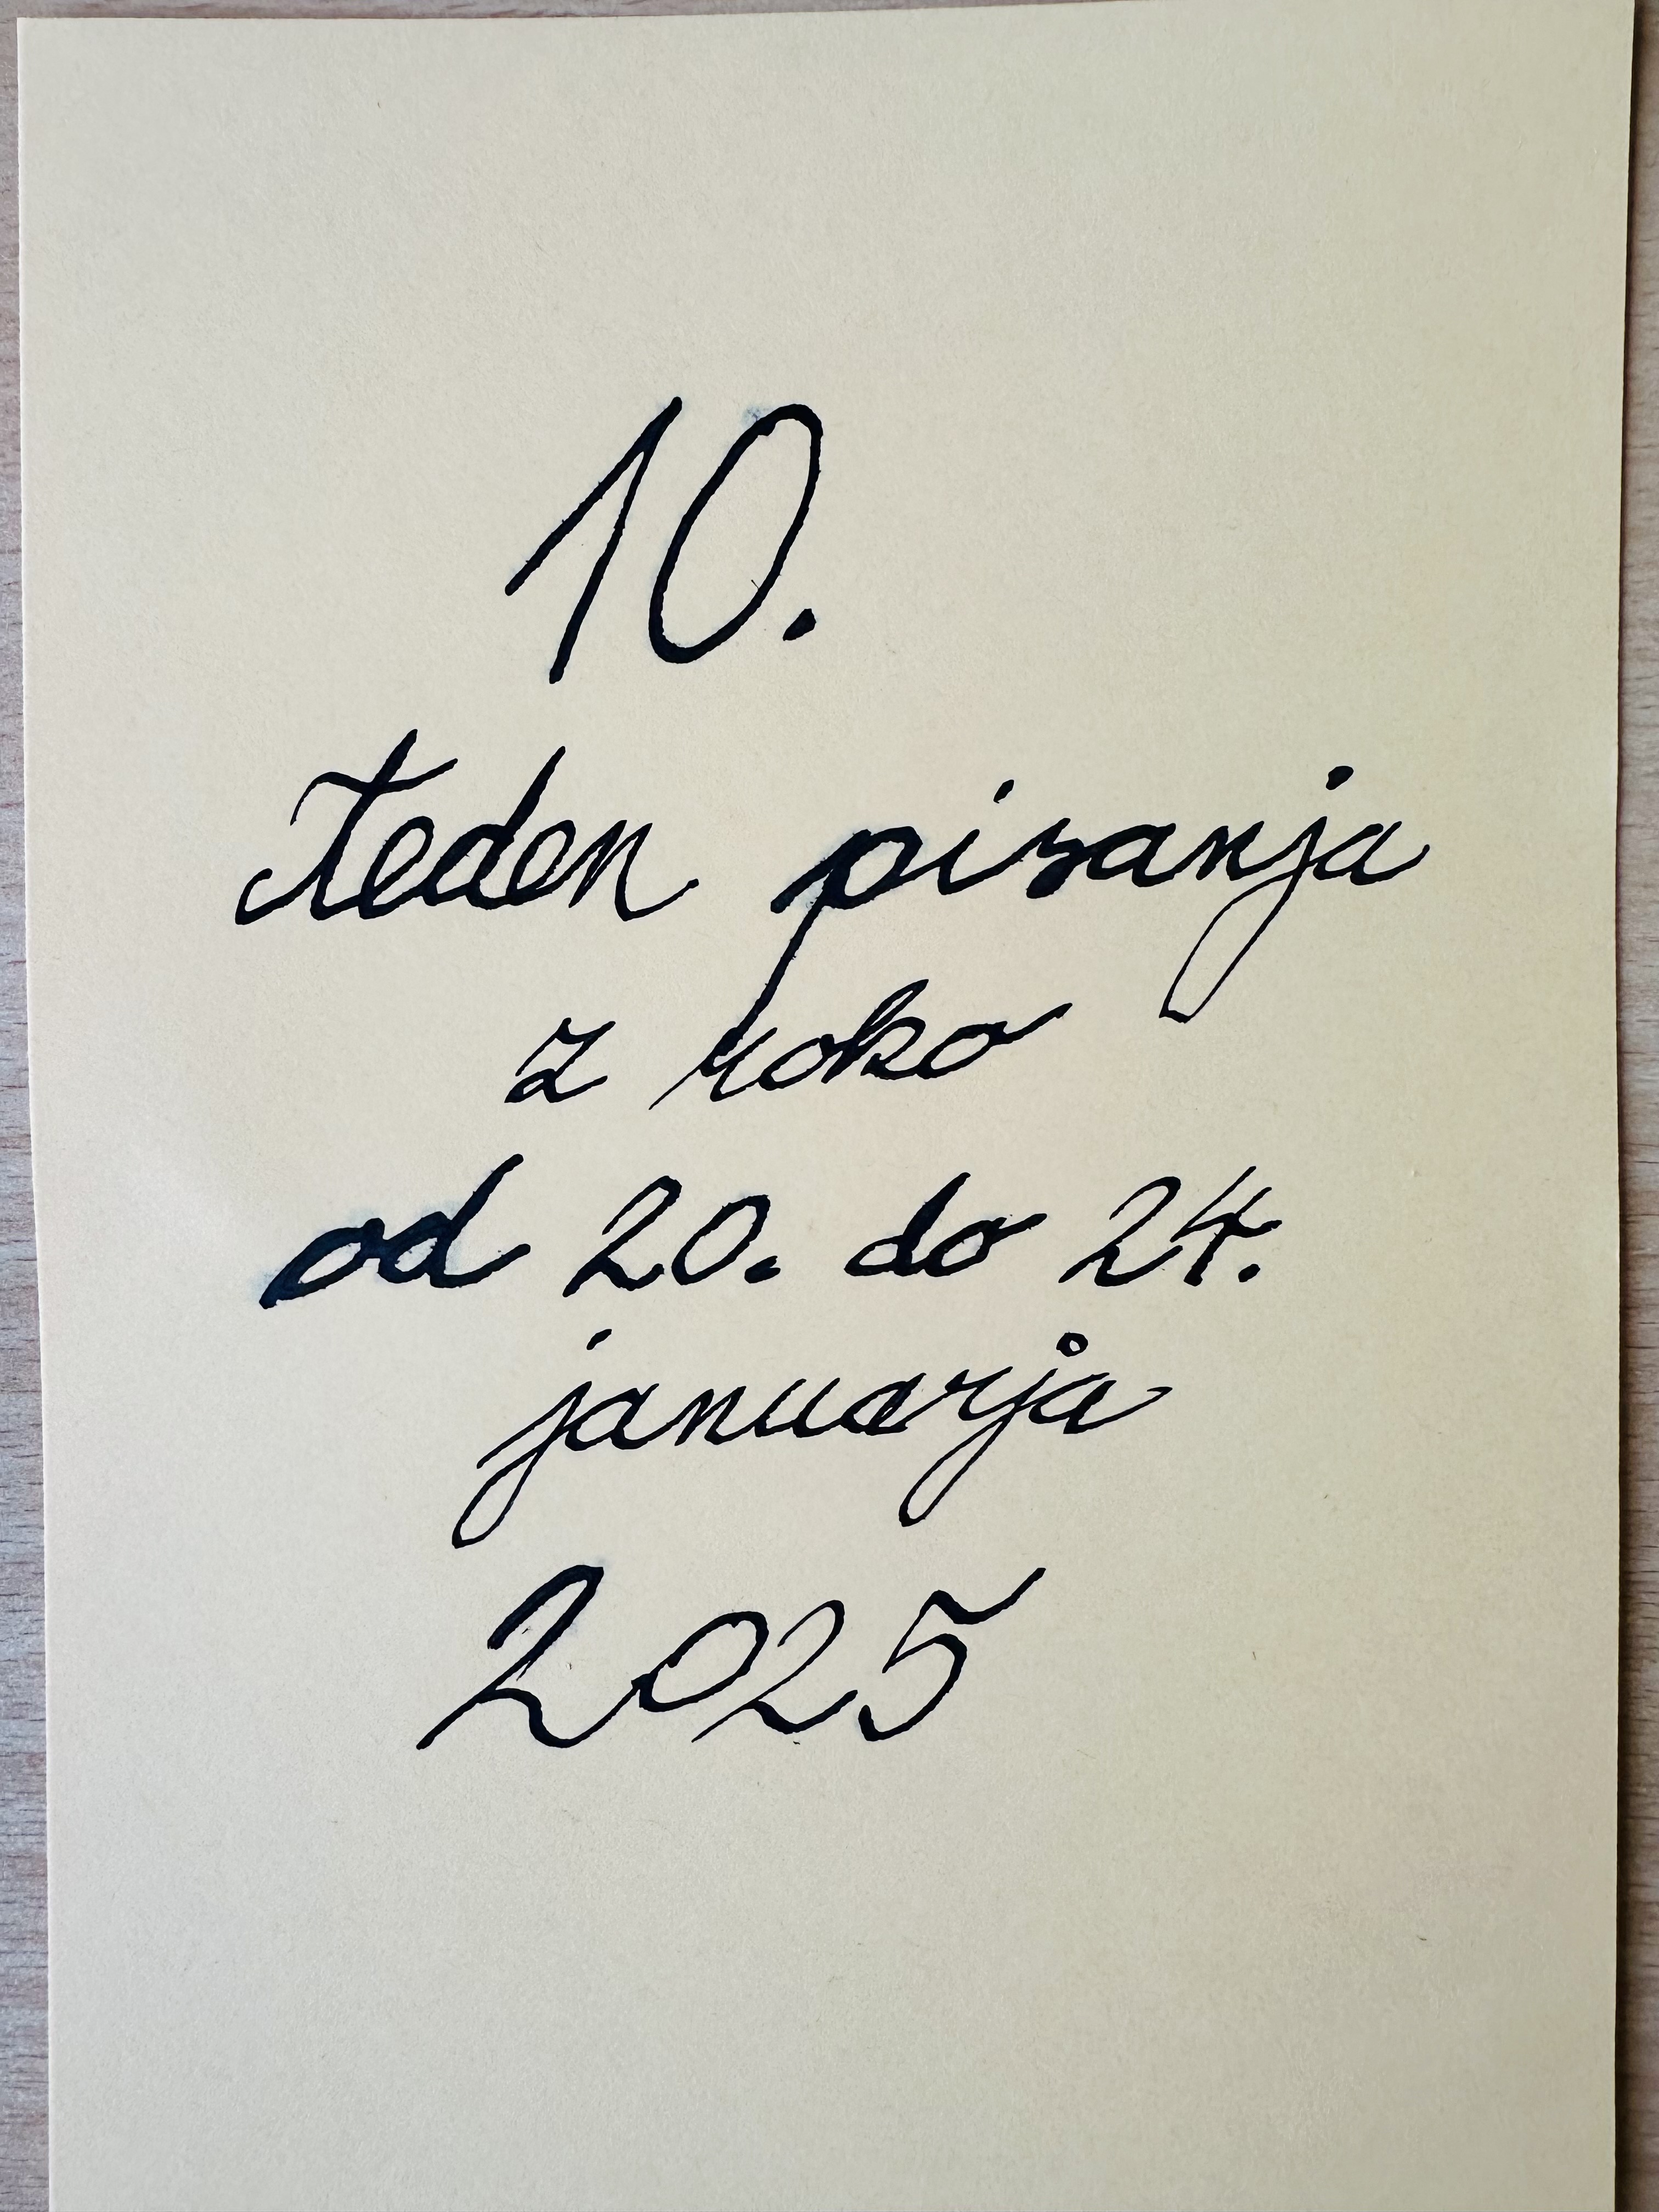 10.
teden pisanja
z roko
od 20. do 24.
januarja
2025